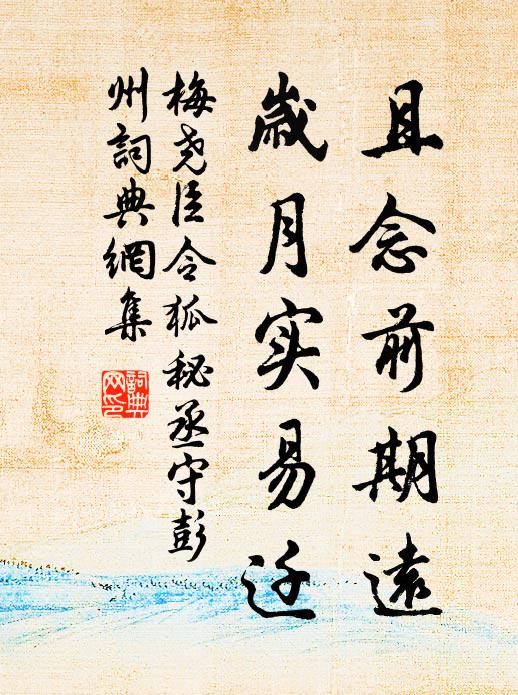 且念前期遠
歲月实易迁
梅堯臣令狐秘丞守彭
州詞典網集
詞典
网印